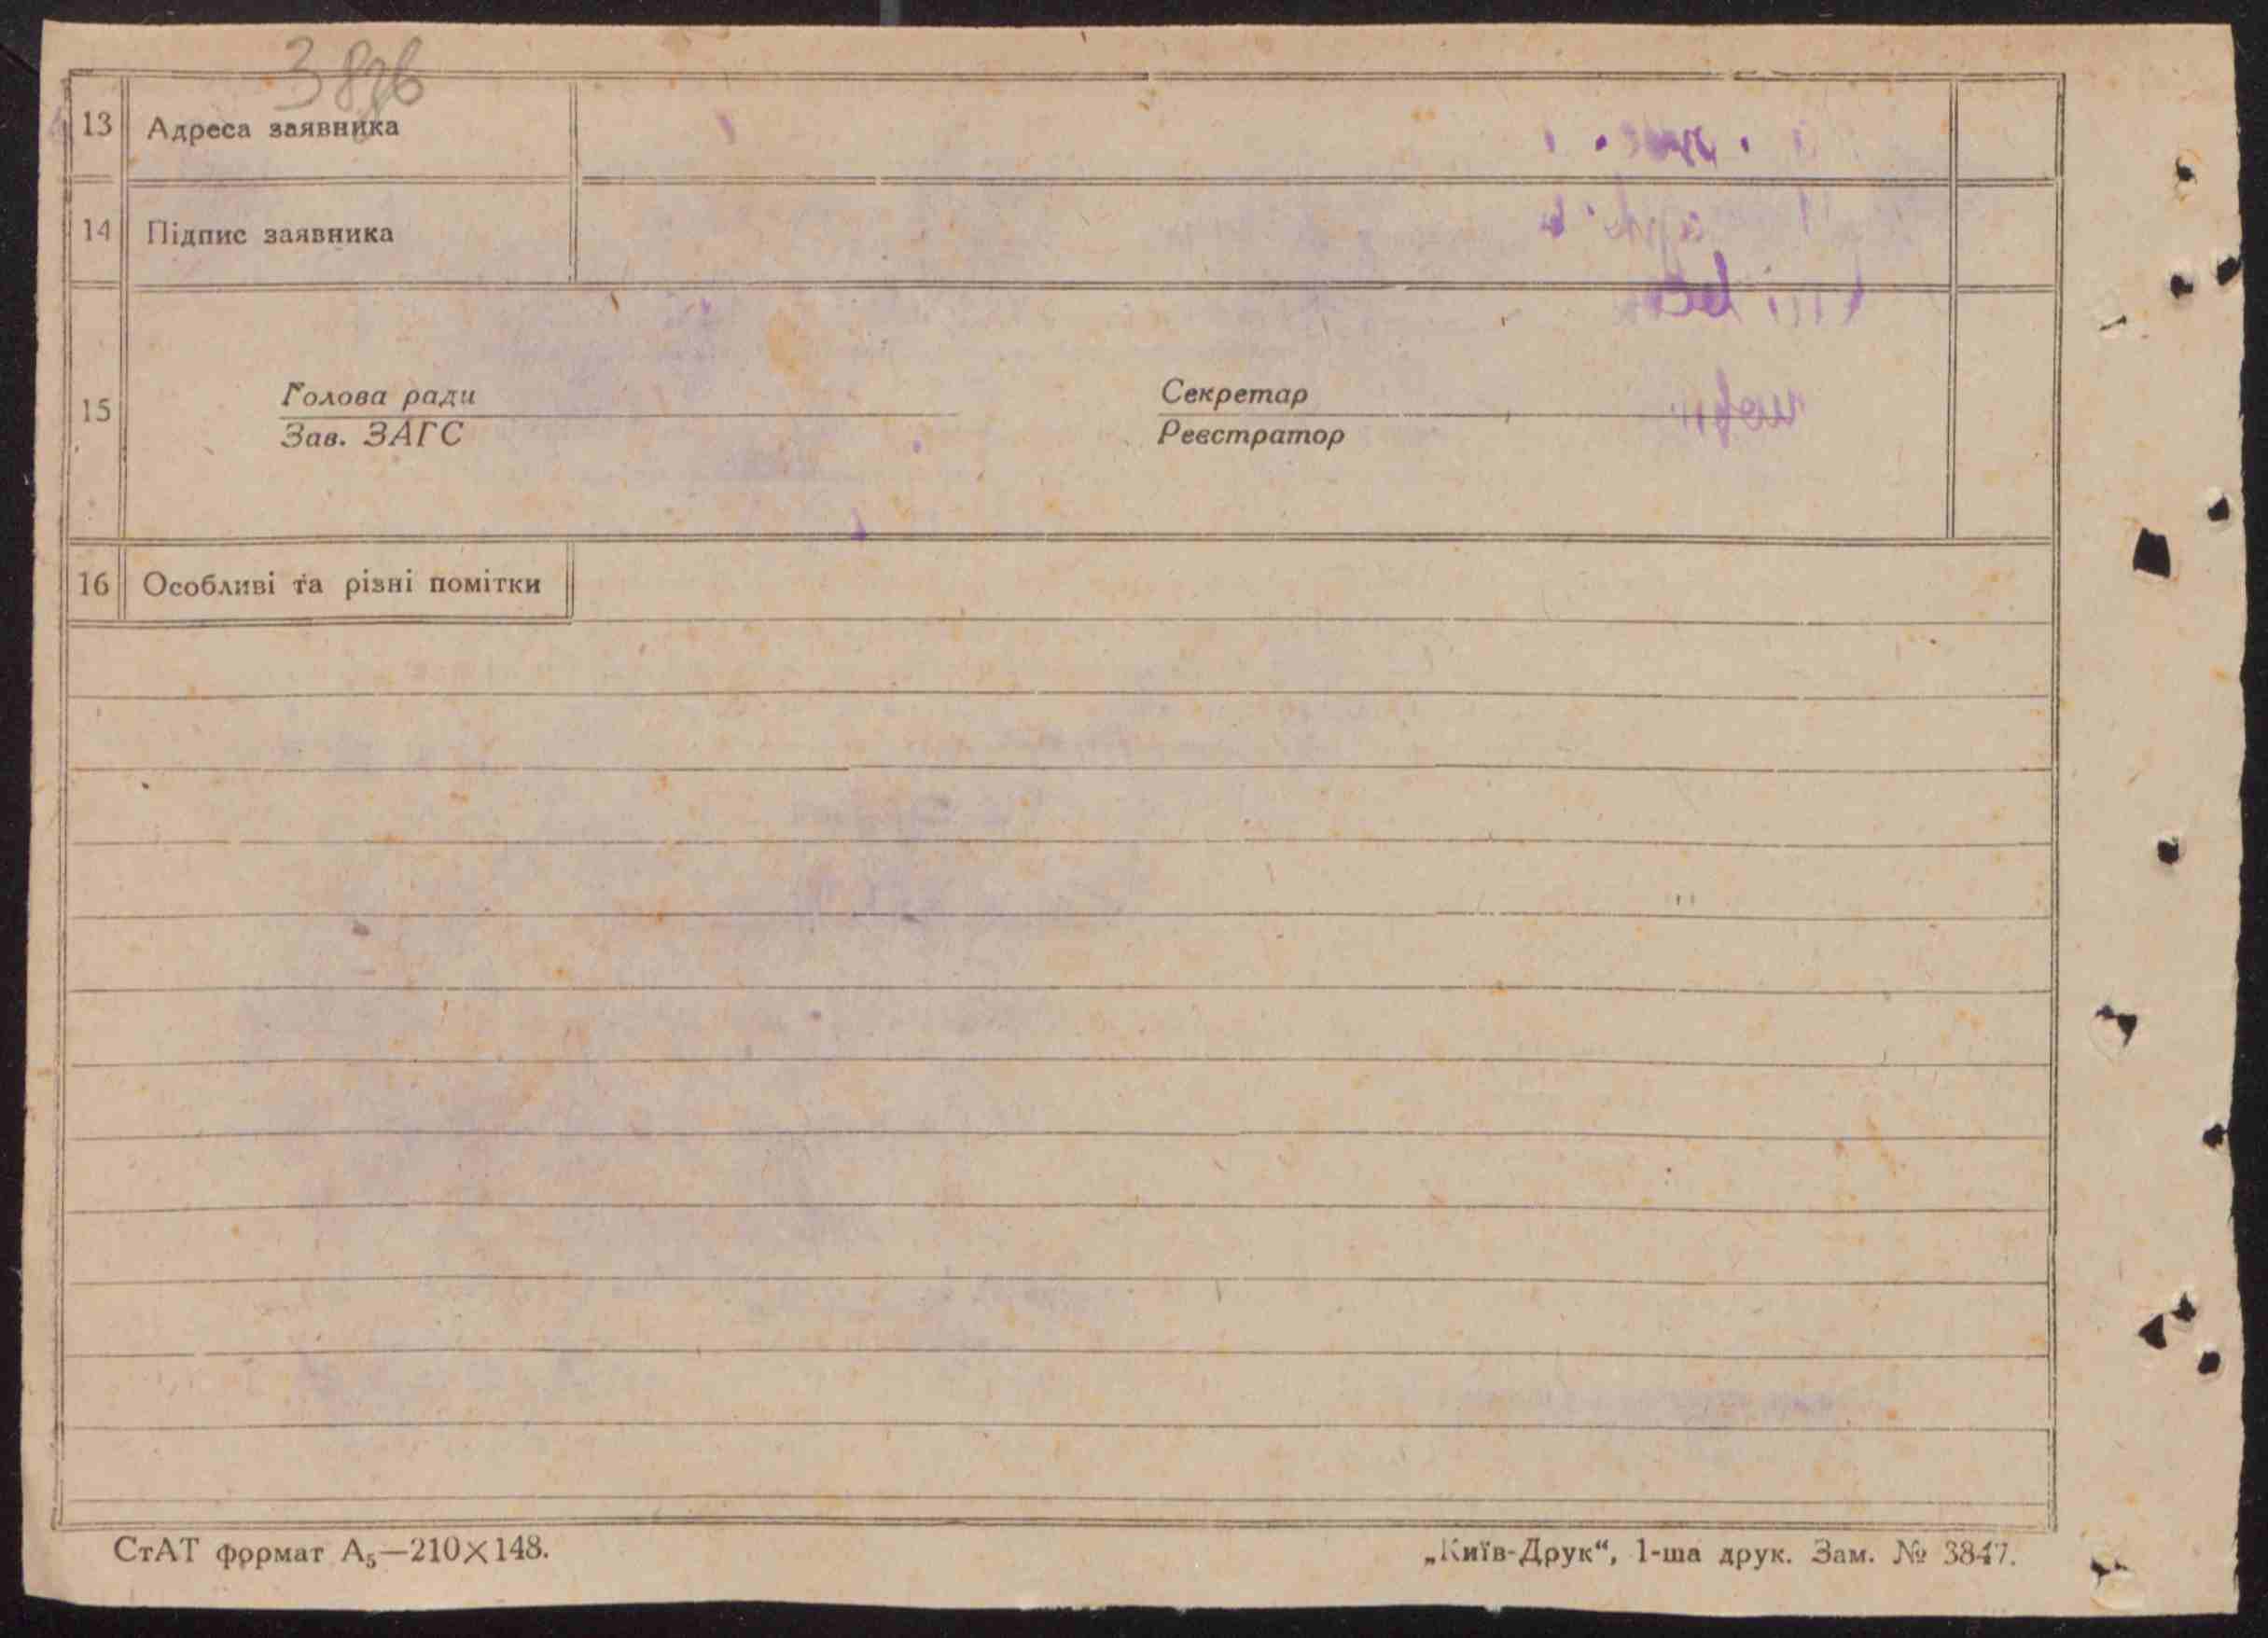 13 Адреса заявника
14 Підпис заявника
15
Голова ради
Зав. ЗАГС
Секретар
Реєстратор
16 Особливі та різні помітки
СтАТ формат А₅—210×148.
„Київ-Друк“, 1-ша друк. Зам. № 3847.